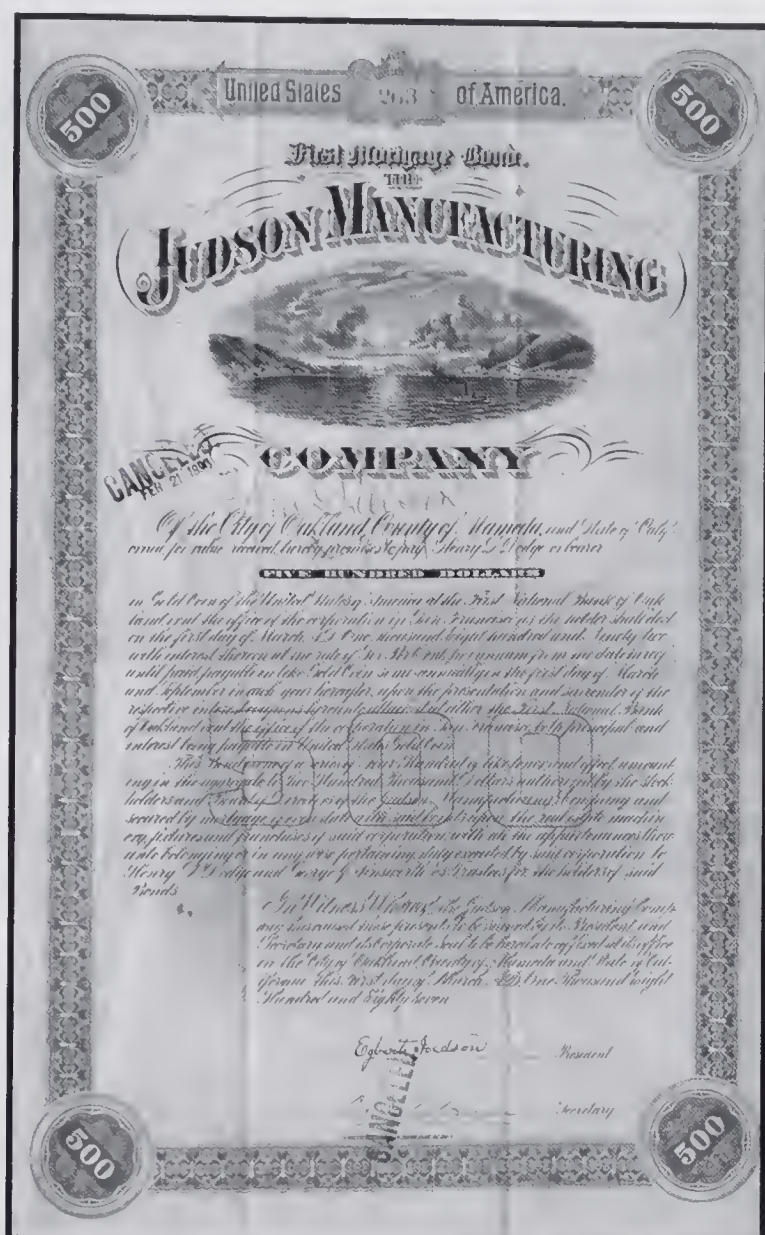 500
United States 263 of America.
500
First Mortgage Bond.
THE
JUDSON MANUFACTURING
COMPANY
CANCELLED
FEB 21
Of the City of Oakland County of Alameda, and State of Cali
ornia for value received, hereby promises to pay Henry L. Dodge or bearer
FIVE HUNDRED DOLLARS
in Gold Coin of the United States of America at the First National Bank of Oak
land or at the office of the corporation in San Francisco as the holder shall elect
on the first day of March, A.D. One thousand eight hundred and Ninety two
with interest thereon at the rate of Per Cent. per annum from date
until paid payable in like Gold Coin semi-annually on the first day of March
and September in each year hereafter, upon the presentation and surrender of the
respective interest coupons hereunto attached at either the First National Bank
of Oakland or at the office of the corporation in San Francisco, both principal and
interest being payable in United States Gold Coin
This Bond is one of a series of Hundred of like tenor and effect amount
ing in the aggregate to Hundred Thousand Dollars authorized by the Stock
holders and Board of Directors of the Judson Manufacturing Company and
secured by mortgage of even date with said bonds upon the real estate machin
ery, fixtures and franchises of said corporation with all the appurtenances there
unto belonging or in any wise pertaining, duly executed by said corporation to
Henry L. Dodge and George as Trustees for the holders of said
Bonds.
500
In Witness Whereof, the Judson Manufacturing Comp
any has caused these presents to be signed by its President and
Secretary and its Corporate Seal to be hereunto affixed at its office
in the City of Oakland, County of Alameda and State of Cal
ifornia this first day of March A.D. One Thousand eight
Hundred and Eighty Seven
Egbert Judson President
CANCELLED
Secretary
500
500